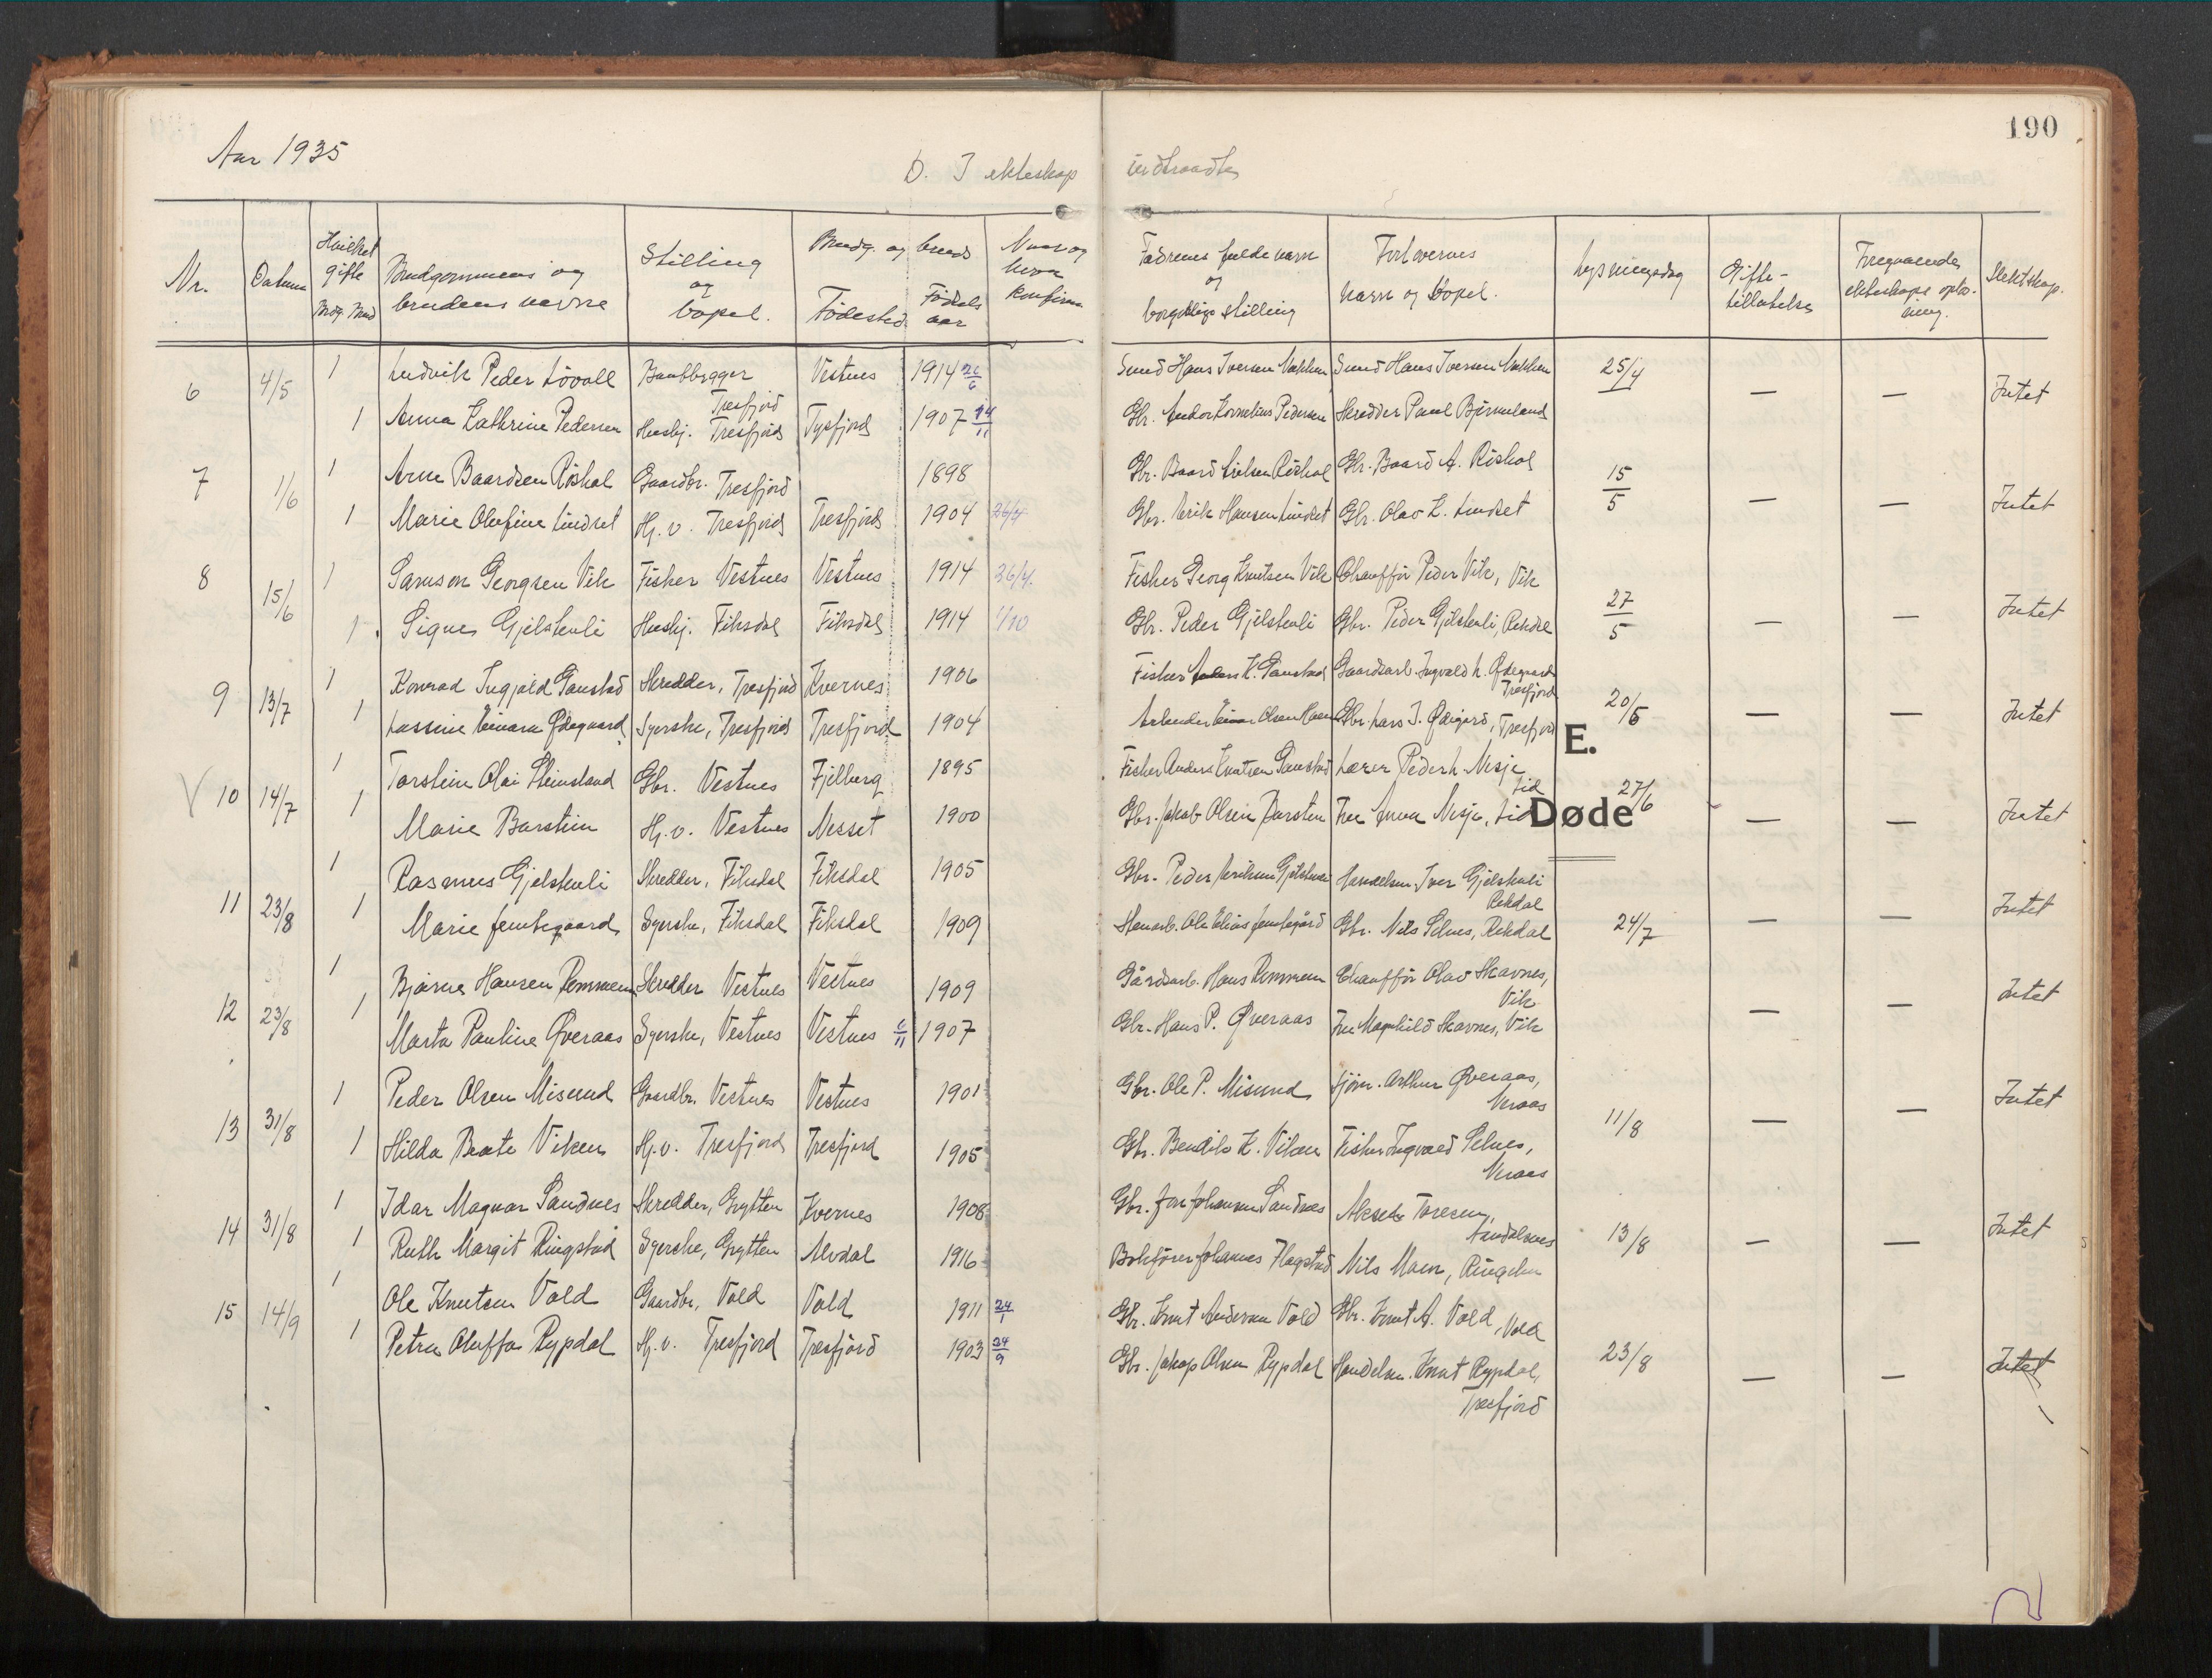 190
Aar 1935
D. I ekteskap indtraadte
Nr. Datum Hvilket gifte Brudg. Brud Brudgommens og brudens navne Stilling og bopel. Brudg. og bruds Fødested. Fødsels aar Naar og hvor konfirm
Fædrenes fulde navn og borgerlige stilling Forlovernes navn og bopel. Lysningsdag Gifte-tillatelse Foregaaende ekteskaps opløsning. Slektskap.
6 4/5 1 Ludvik Peder Lövoll Baatbygger Tresfjord Vestnes 1914 26/6 25/4 — — Intet
1 Anna Kathrine Pedersen Husbj. Tresfjord Tysfjord 1907 14/11 Gbr. Andor Kornelius Pedersen Skredder Paul Bjermeland
7 1/6 1 Arne Baardsen Riskol Gaardbr. Tresfjord 1898 Gbr. Baard Riskol Gbr. Baard A. Riskol 15/5 — — Intet
1 Marie Olufine Lindset Hj. v. Tresfjord Tresfjord 1904 Gbr. Erik Hansen Lindset Gbr. Olav K. Lindset
8 15/6 1 Samson Georgsen Vik Fisker Vestnes Vestnes 1914 26/4 Fisker Georg Knutsen Vik Chauffør Peder Vik, Vik 27/5 — — Intet
1 Signe Gjelstenli Husbj. Fiksdal Fiksdal 1914 1/10 Gbr. Peder Gjelstenli Gbr. Peder Gjelstenli, Rekdal
9 13/7 1 Konrad Ingjald Gaustad Skredder, Tresfjord Kvernes 1906 Fisker Anders K. Gaustad Gaardsarb. Ingvald L. Ødegaard Tresfjord 20/5 — — Intet
1 Lassine Ødegaard Syerske, Tresfjord Tresfjord 1904 Arbeider Einar Olsen Gbr. Lars J. Ødegård, Tresfjord
E.
10 14/7 1 Torstein Olai Steinsland Gbr. Vestnes Fjelberg 1895 Fisker Anders Knutsen Gaustad Lærer Peder L. Nesje Lid 27/6 — — Intet
1 Marie Barstein Hj. v. Vestnes Nesset 1900 Gbr. Jakob Olsen Barsten Fru Anna Nesje, Lid
Døde
11 23/8 1 Rasmus Gjelstenli Skredder, Fiksdal Fiksdal 1905 Gbr. Peder Eriksen Gjelstenli Handelsm. Iver Gjelstenli Rekdal 24/7 — — Intet
1 Marie Jemtegaard Syerske, Fiksdal Fiksdal 1909 Stenarb. Ole Elias Jemtegård Gbr. Nils Selnes, Rekdal
12 23/8 1 Bjarne Hansen Remmem Skredder Vestnes Vestnes 1909 Gårdsarb. Hans Remmem Chauffør Olav Skavnes, Vik — — Intet
1 Marta Pauline Øveraas Syerske, Vestnes Vestnes 6/11 1907 Gbr. Hans P. Øveraas Fru Magnhild Skavnes, Vik
13 31/8 1 Peder Olsen Misund Gaardbr. Vestnes Vestnes 1901 Gbr. Ole P. Misund Sjöm. Arthur Øveraas, Vraas 11/8 — — Intet
1 Hilda Beate Viken Hj. v. Tresfjord Tresfjord 1905 Gbr. Bendik K. Viken Fisker Ingvald Selnes, Vraas
14 31/8 1 Idar Magnar Sandnes Skredder, Grytten Kvernes 1908 Gbr. Jon Johansen Sandnes Aksel Toresen, Aandalsnes 13/8 — — Intet
1 Ruth Margit Ringstad Syerske, Grytten Alvdal 1916 Bokfører Johannes Flagstad Nils Moen,
15 14/9 1 Ole Knutsen Vold Gaardbr, Vold Vold 1911 24/1 Gbr. Knut Andersen Vold Gbr. Knut A. Vold, Vold 23/8 — — Intet
1 Petra Oluffa Rypdal Hj. v. Tresfjord Tresfjord 1903 24/9 Gbr. Jakop Olsen Rypdal Handelsm. Knut Rypdal, Tresfjord